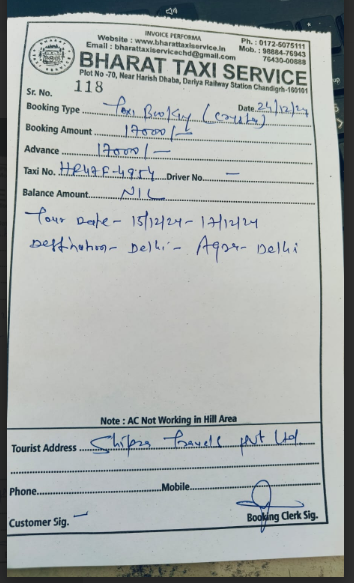 INVOICE PERFORMA
Website : www.bharattaxiservice.in Ph. : 0172-5075111
Email : bharattaxiservicechd@gmail.com Mob. : 98884-76943
76430-00888
BHARAT TAXI SERVICE
Plot No -70, Near Harish Dhaba, Dariya Railway Station Chandigrh-160101
Sr. No. 118
Booking Type Taxi Booking (crysta) Date 24/12/24
Booking Amount 17000/-
Advance 17000/-
Taxi No. Driver No. -
Balance Amount NIL
Tour Date - 15/12/24 - 17/12/24
Destination - Delhi - Agra - Delhi
Note : AC Not Working in Hill Area
Tourist Address Shipra Travels Pvt Ltd.
Phone Mobile
Customer Sig. Booking Clerk Sig.